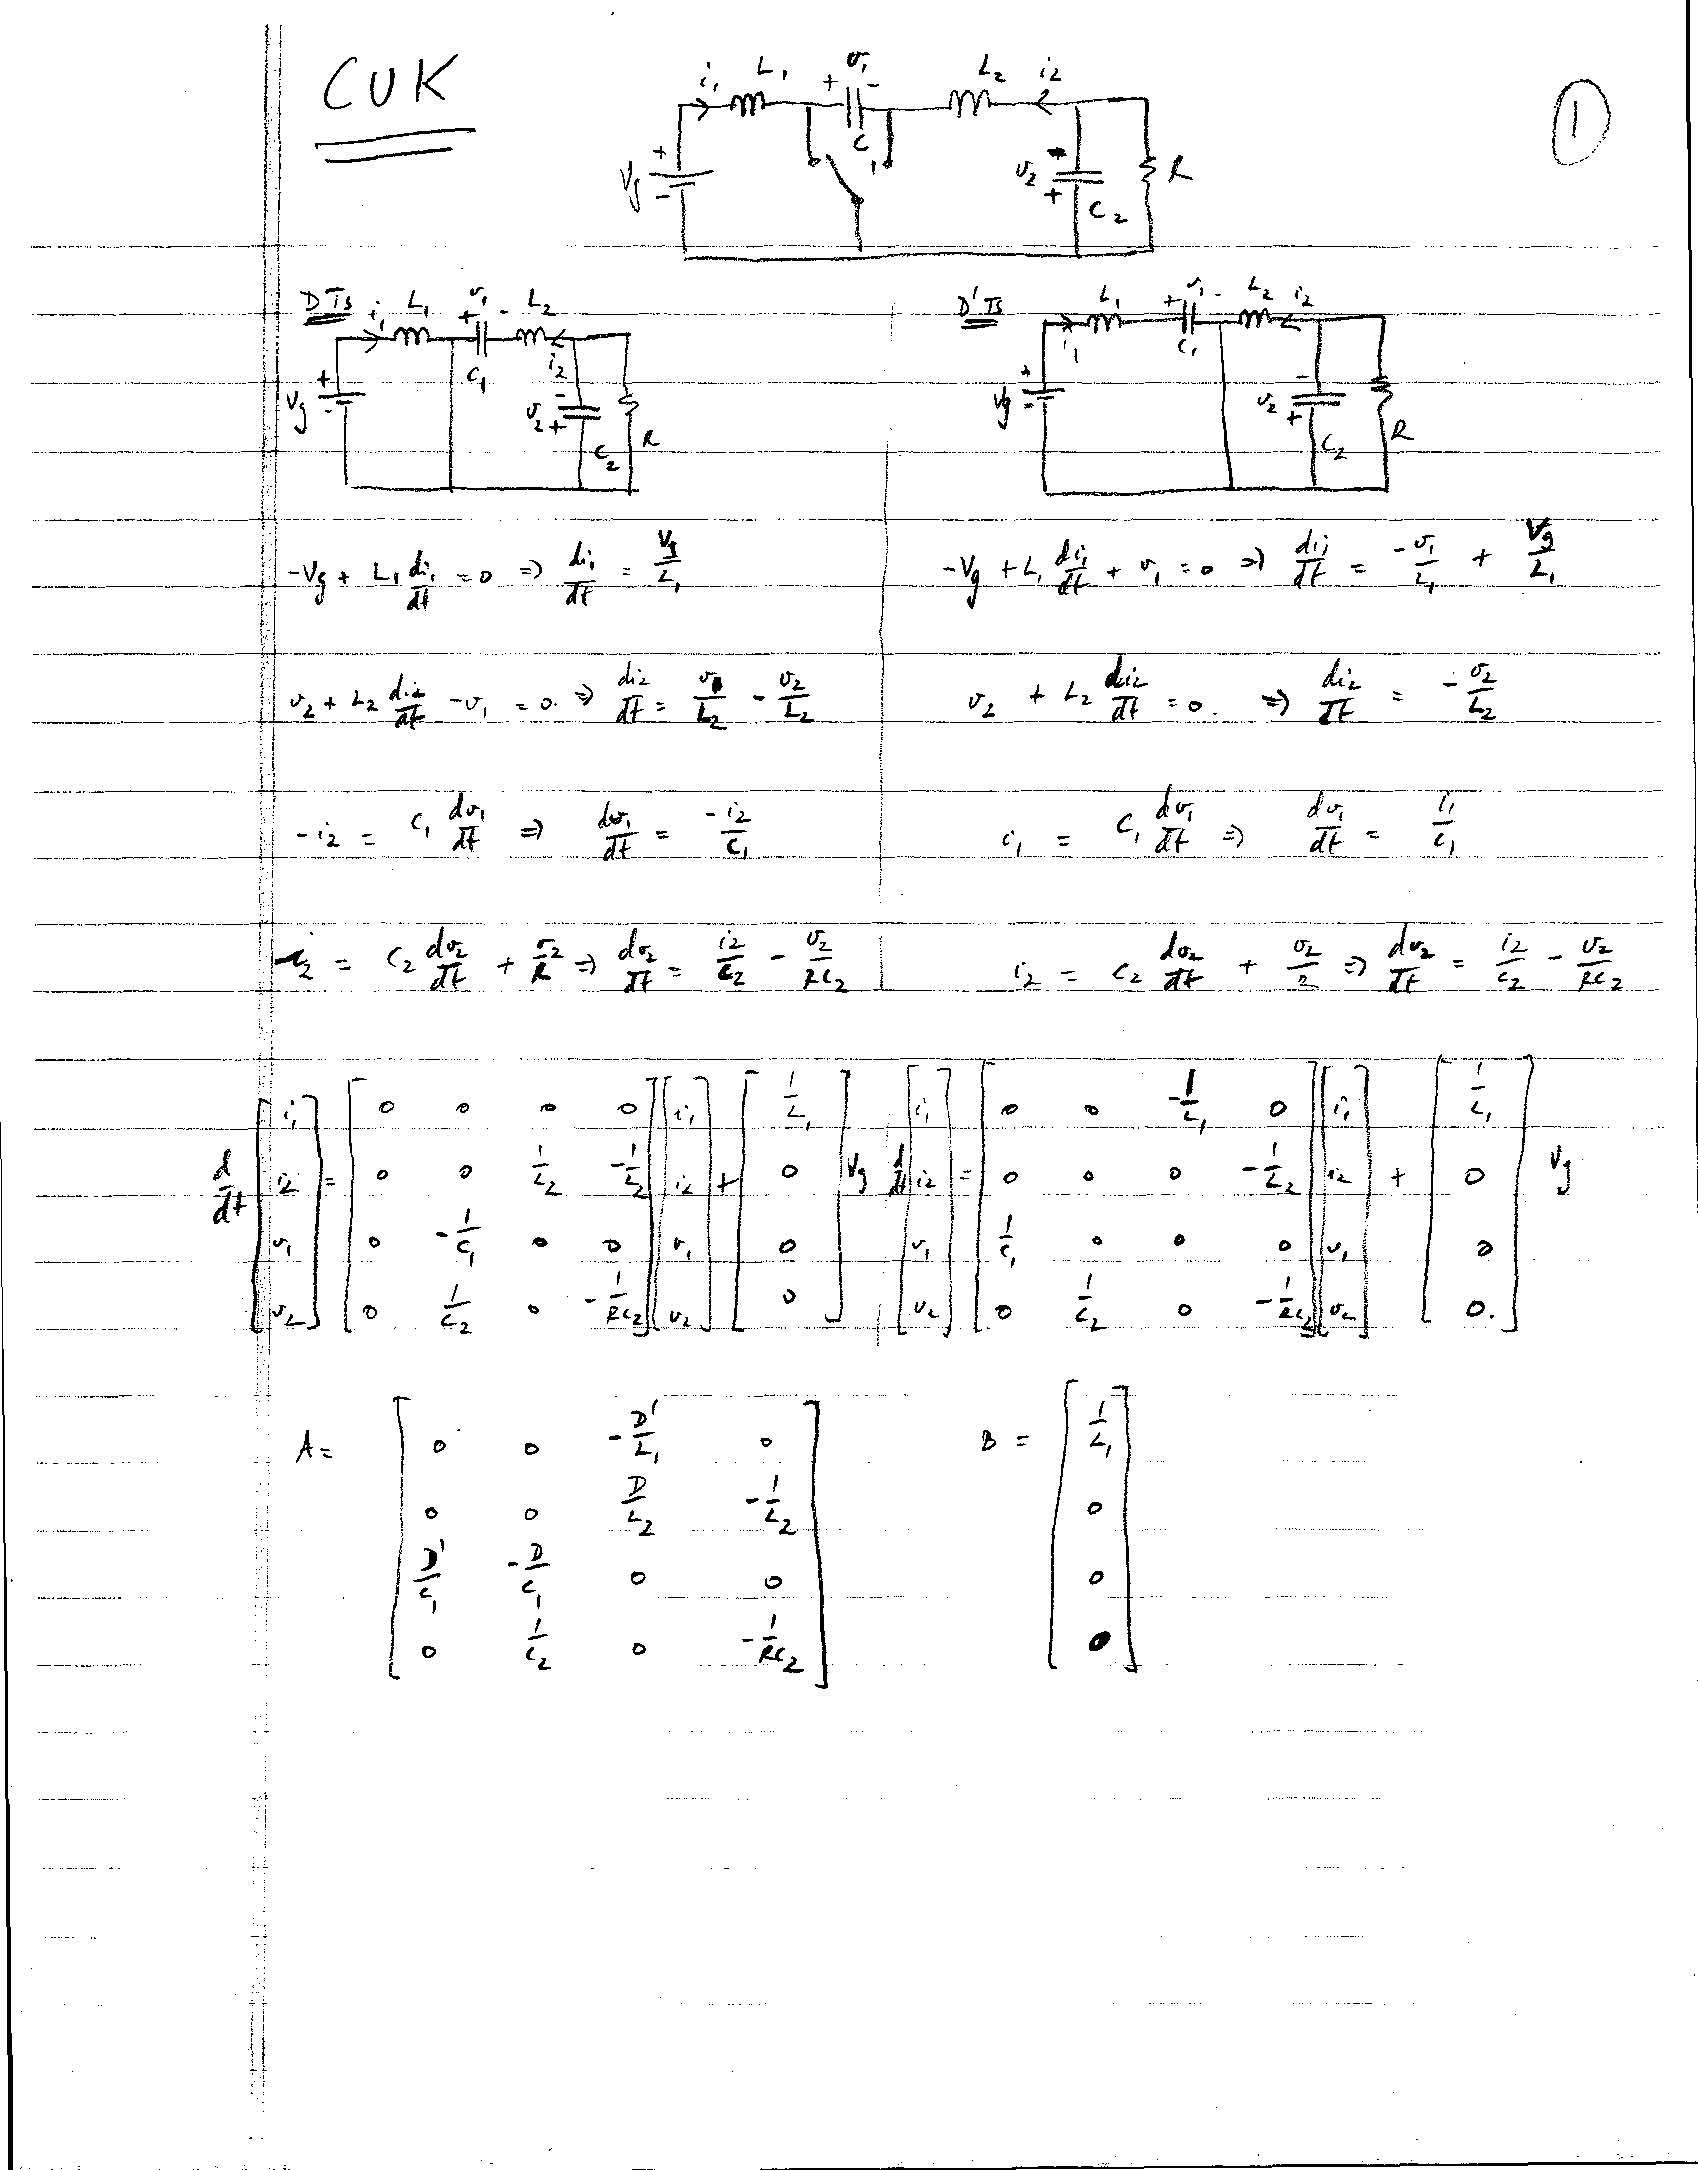 CUK
①
i₁ L₁ + v₁ - L₂ i₂
Vg + - C₁ v₂ - + C₂ R
DTs i₁ L₁ + v₁ - L₂
Vg + - C₁ i₂ v₂ - + C₂ R
D'Ts L₁ + v₁ - L₂ i₂
Vg + - i₁ C₁ v₂ - + C₂ R
-Vg + L₁ di₁/dt = 0 ⇒ di₁/dt = Vg/L₁
-Vg + L₁ di₁/dt + v₁ = 0 ⇒ di₁/dt = -v₁/L₁ + Vg/L₁
v₂ + L₂ di₂/dt - v₁ = 0. ⇒ di₂/dt = v₁/L₂ - v₂/L₂
v₂ + L₂ di₂/dt = 0. ⇒ di₂/dt = -v₂/L₂
-i₂ = C₁ dv₁/dt ⇒ dv₁/dt = -i₂/C₁
i₁ = C₁ dv₁/dt ⇒ dv₁/dt = i₁/C₁
i₂ = C₂ dv₂/dt + v₂/R ⇒ dv₂/dt = i₂/C₂ - v₂/RC₂
i₂ = C₂ dv₂/dt + v₂/R ⇒ dv₂/dt = i₂/C₂ - v₂/RC₂
d/dt [i₁ i₂ v₁ v₂] = [0 0 0 0
0 0 1/L₂ -1/L₂
0 -1/C₁ 0 0
0 1/C₂ 0 -1/RC₂] [i₁ i₂ v₁ v₂] + [1/L₁ 0 0 0] Vg
d/dt [i₁ i₂ v₁ v₂] = [0 0 -1/L₁ 0
0 0 0 -1/L₂
1/C₁ 0 0 0
0 1/C₂ 0 -1/RC₂] [i₁ i₂ v₁ v₂] + [1/L₁ 0 0 0.] Vg
A = [0 0 -D'/L₁ 0
0 0 D/L₂ -1/L₂
D'/C₁ -D/C₁ 0 0
0 1/C₂ 0 -1/RC₂]
B = [1/L₁ 0 0 0]